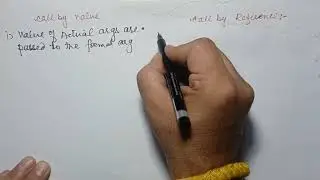 Call by value
Call by Reference:-
1) Value of Actual args are
passed to the formal arg